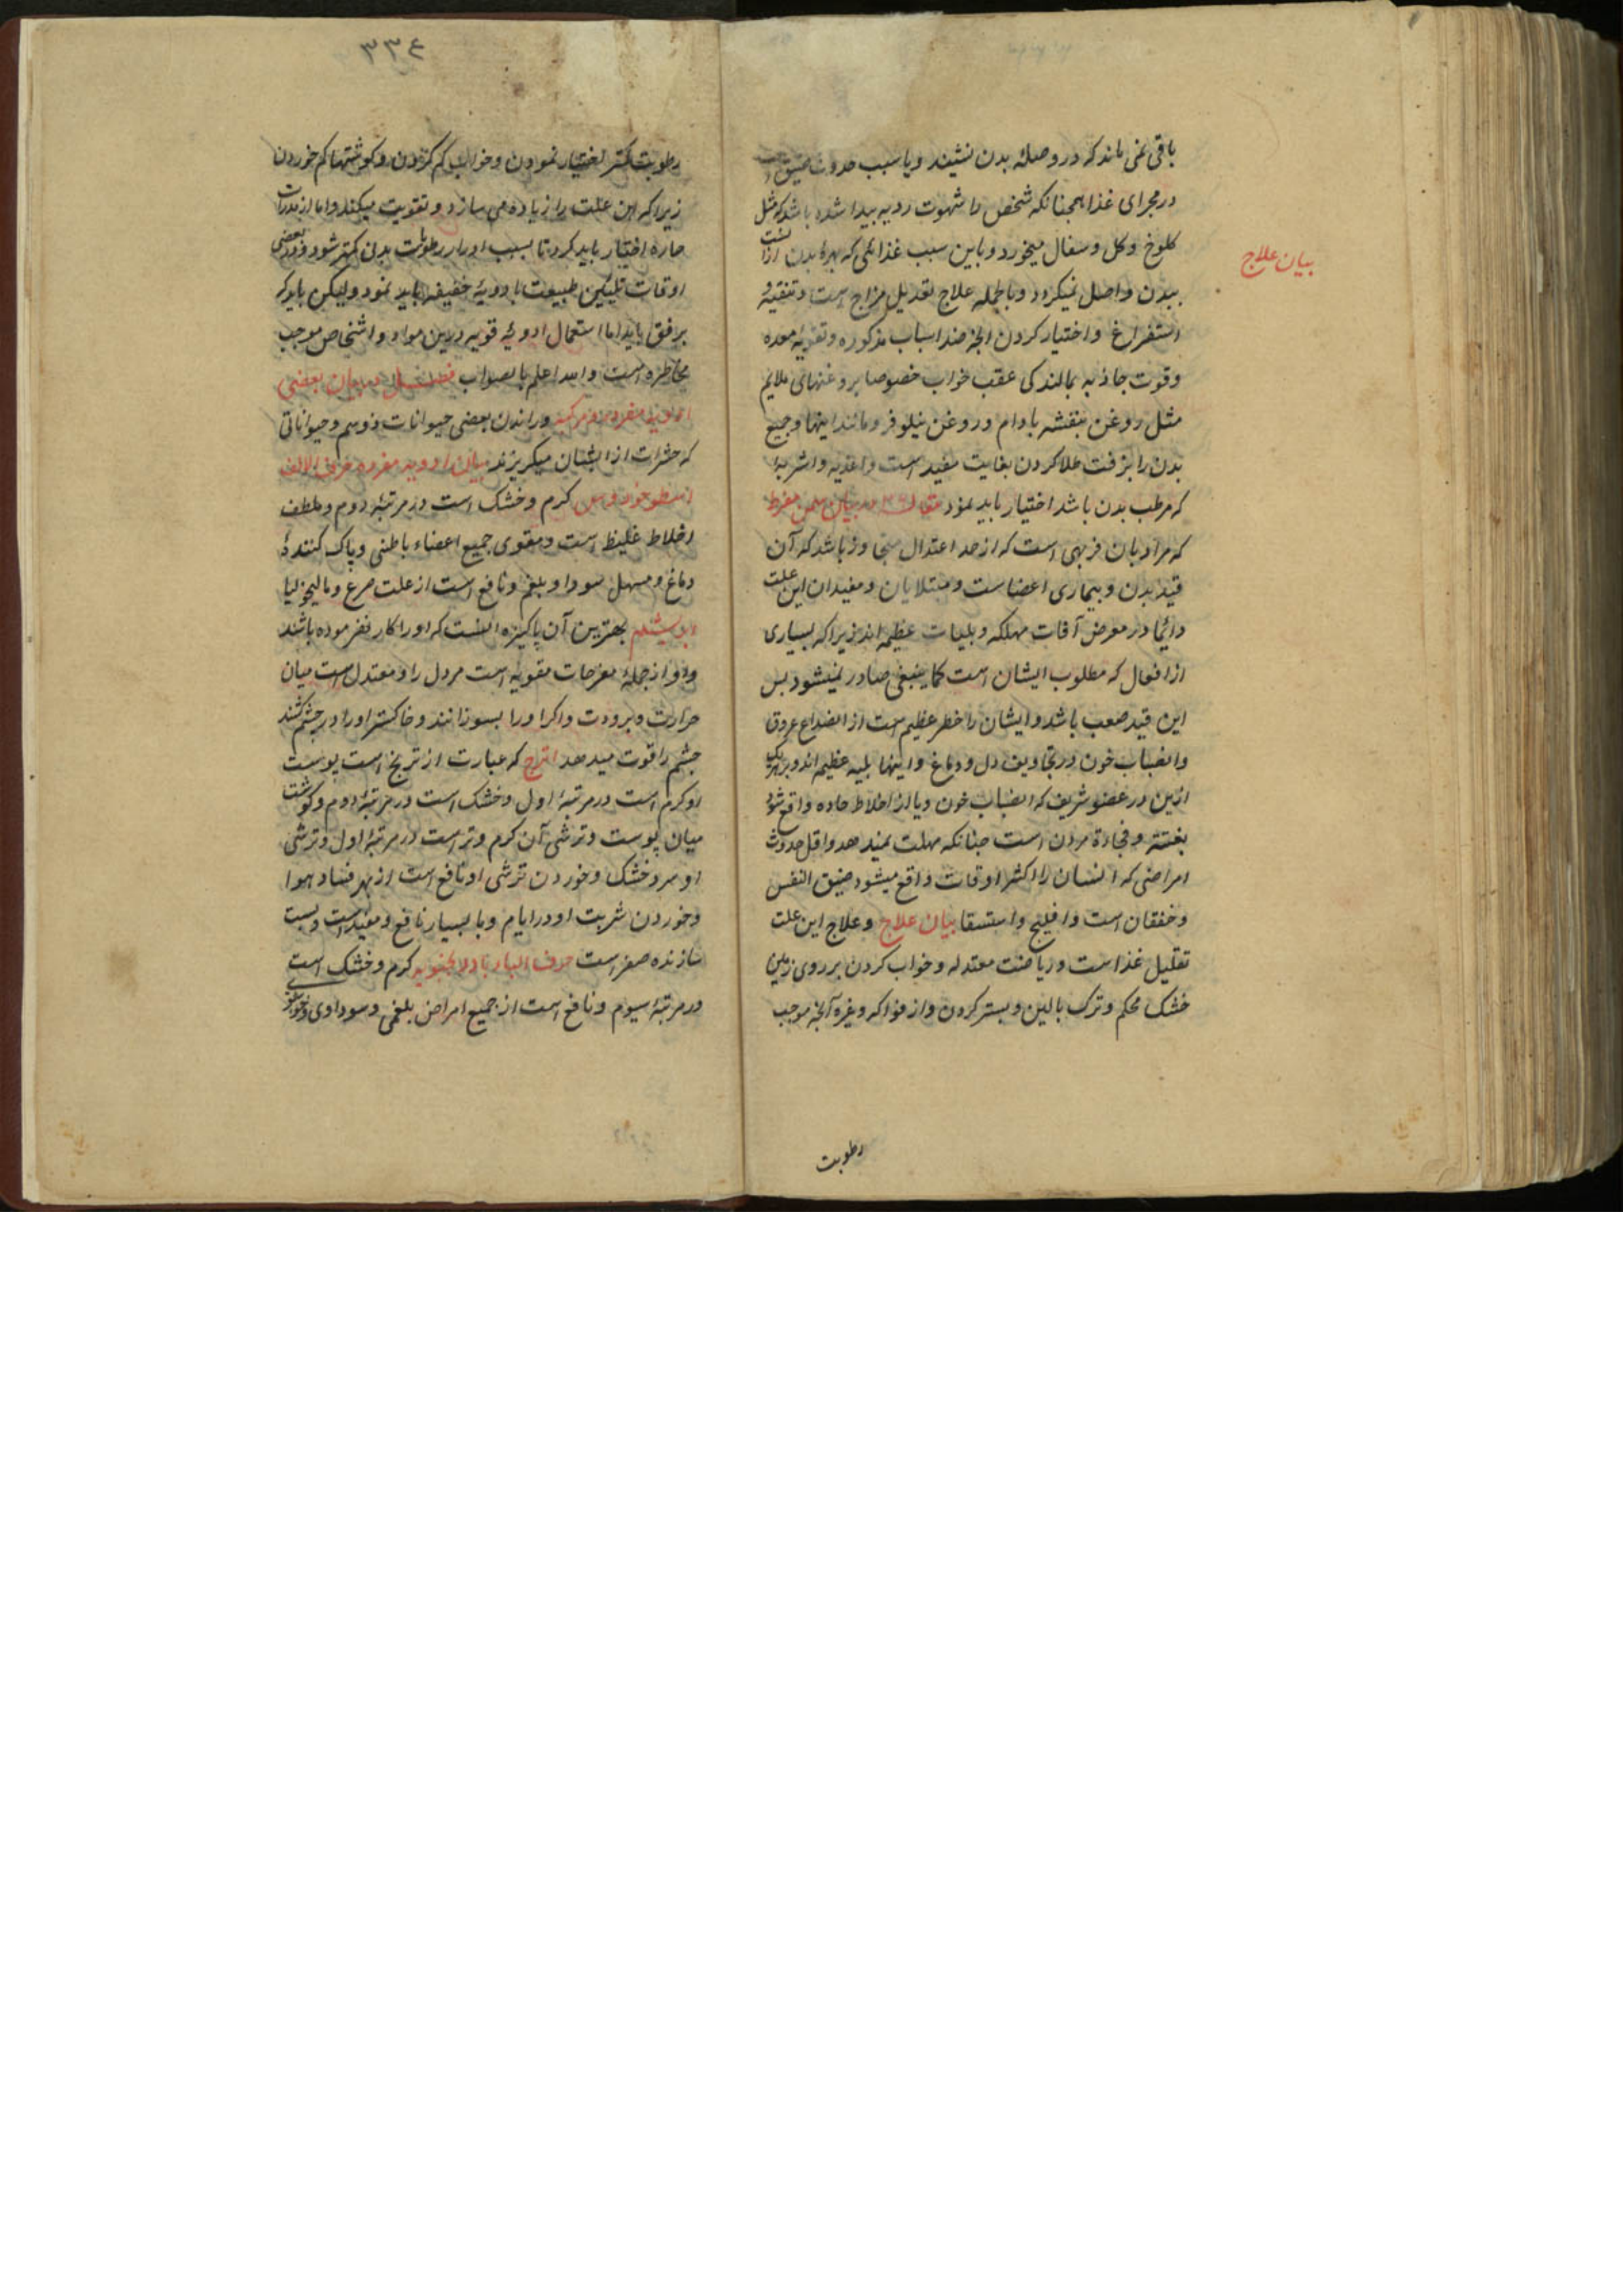 باقی نمی ماند که در وصلهٔ بدن نشیند و یا سبب حدوث ضیق است
در مجرای غذا همچنانکه شخص را شهوت ردیه پیدا شده باشد که مثل
کلوخ و کل و سفال میخورد و باین سبب غذائی که بهرهٔ بدن ازانست
ببدن واصل نمیکردد و بالجمله علاج تعدیل مزاج است و تنقیه و
استفراغ و اختیار کردن انچه ضد اسباب مذکوره و تقویهٔ معده
وقوت جاذبه بمالند کی عقب خواب خصوصا بروغنهائی ملایم
مثل روغن بنفشه بادام و روغن نیلوفر و مانند اینها و جمیع
بدن را بزفت طلا کردن بغایت مفید است و اغذیه و اشربهٔ
که مرطب بدن باشد اختیار باید نمود مقاله در بیان سمن مفرط
که مراد بان فربهی است که از حد اعتدال متجاوز باشد که آن
قید بدن و بیماری اعضاست و مبتلایان و مقیدان این علت
دائما در معرض آفات مهلکه و بلیات عظیمه اند زیرا که بسیاری
از افعال که مطلوب ایشان است کما ینبغی صادر نمیشود بس
این قید صعب باشد و ایشان را خطر عظیم است از انصداع عروق
وانصباب خون در تجاویف دل و دماغ و اینها بلیه عظیمه اند و بر هر یک
ازین در عضو شریف که انصباب خون و یا از اخلاط حاده واقع شود
بغتتة و فجاءة مردن است چنانکه مهلت نمیدهد و اقل حدوث
امراضی که انسان را اکثر اوقات واقع میشود ضیق النفس
و خفقان است و افلیج و استسقا بیان علاج و علاج این علت
تقلیل غذا است و ریاضت معتدله و خواب کردن بر روی زمین
خشک محکم و ترک بالین و بستر کردن و از فواکه و غیره آنچه موجب
رطوبت
بیان علاج
۳۳٤
رطوبت کمتر اختیار نمودن و خواب کم کردن و کوشتها کم خوردن
زیرا که این علت را زیاده می سازد و تقویت میکند و اما از مدرات
حاره اختیار باید کرد تا بسبب ادرار رطوبات بدن کمتر شود و در بعضی
اوقات تلیین طبیعت بادویهٔ خفیفه باید نمود ولیکن باید که
برفق باید اما استعمال ادویهٔ قویه درین مواد و اشخاص موجب
مخاطره است والله اعلم بالصواب فصل در بیان بعضی
ادویه مفرده و مرکبه و راندن بعضی حیوانات ذو سم و حیواناتی
که حشرات از ایشان میکریزند بیان ادویه مفرده حرف الالف
اسطوخودوس کرم و خشک است در مرتبهٔ دوم و ملطف
اخلاط غلیظ است و مقوی جمیع اعضاء باطنی و پاک کنندهٔ
دماغ و مسهل سودا و بلغم و نافع است از علت صرع و مالیخولیا
ابریشم بهترین آن پاکیزه السنت که او را کار نفرموده باشند
واو از جملهٔ مفرحات مقویه است مر دل را و معتدل است میان
حرارت و برودت و اکر او را بسوزانند و خاکستر او را در چشم کشند
چشم را قوت میدهد اترج که عبارت از ترنج است پوست
او کرم است در مرتبهٔ اول و خشک است در مرتبهٔ دوم و کوشت
میان پوست و ترشی آن کرم و تر است در مرتبهٔ اول و ترشی
او سرد خشک و خوردن ترشی او نافع است از بهر فساد هوا
و خوردن شربت او در ایام وبا بسیار نافع و مفید است و پست
سازنده صفر است حرف الباء بادرنجبویه کرم و خشک است
در مرتبهٔ سیوم و نافع است از جمیع امراض بلغمی و سوداوی و